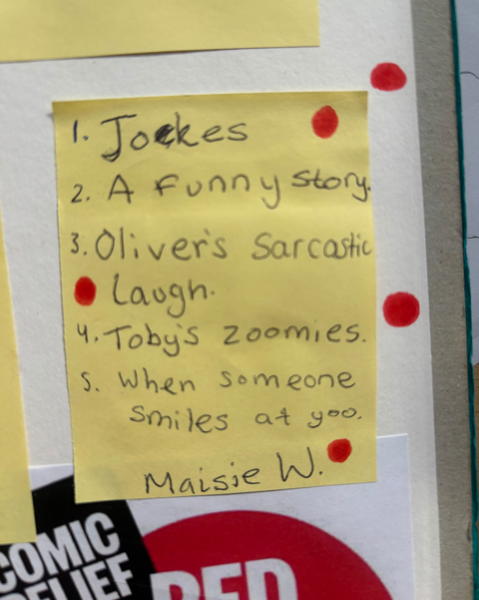 1. Jokes
2. A funny story.
3. Oliver's Sarcastic
Laugh.
4. Toby's zoomies.
5. When someone
smiles at yoo.
Maisie W.
COMIC
RELIEF
RED